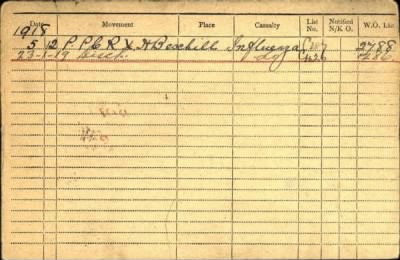 Date Movement Place Casualty List No. Notified N/K O. W.O. List
1918
5 12 P.P.C.R X H Bexhill Influenza 2788
23-1-19 Disch. do